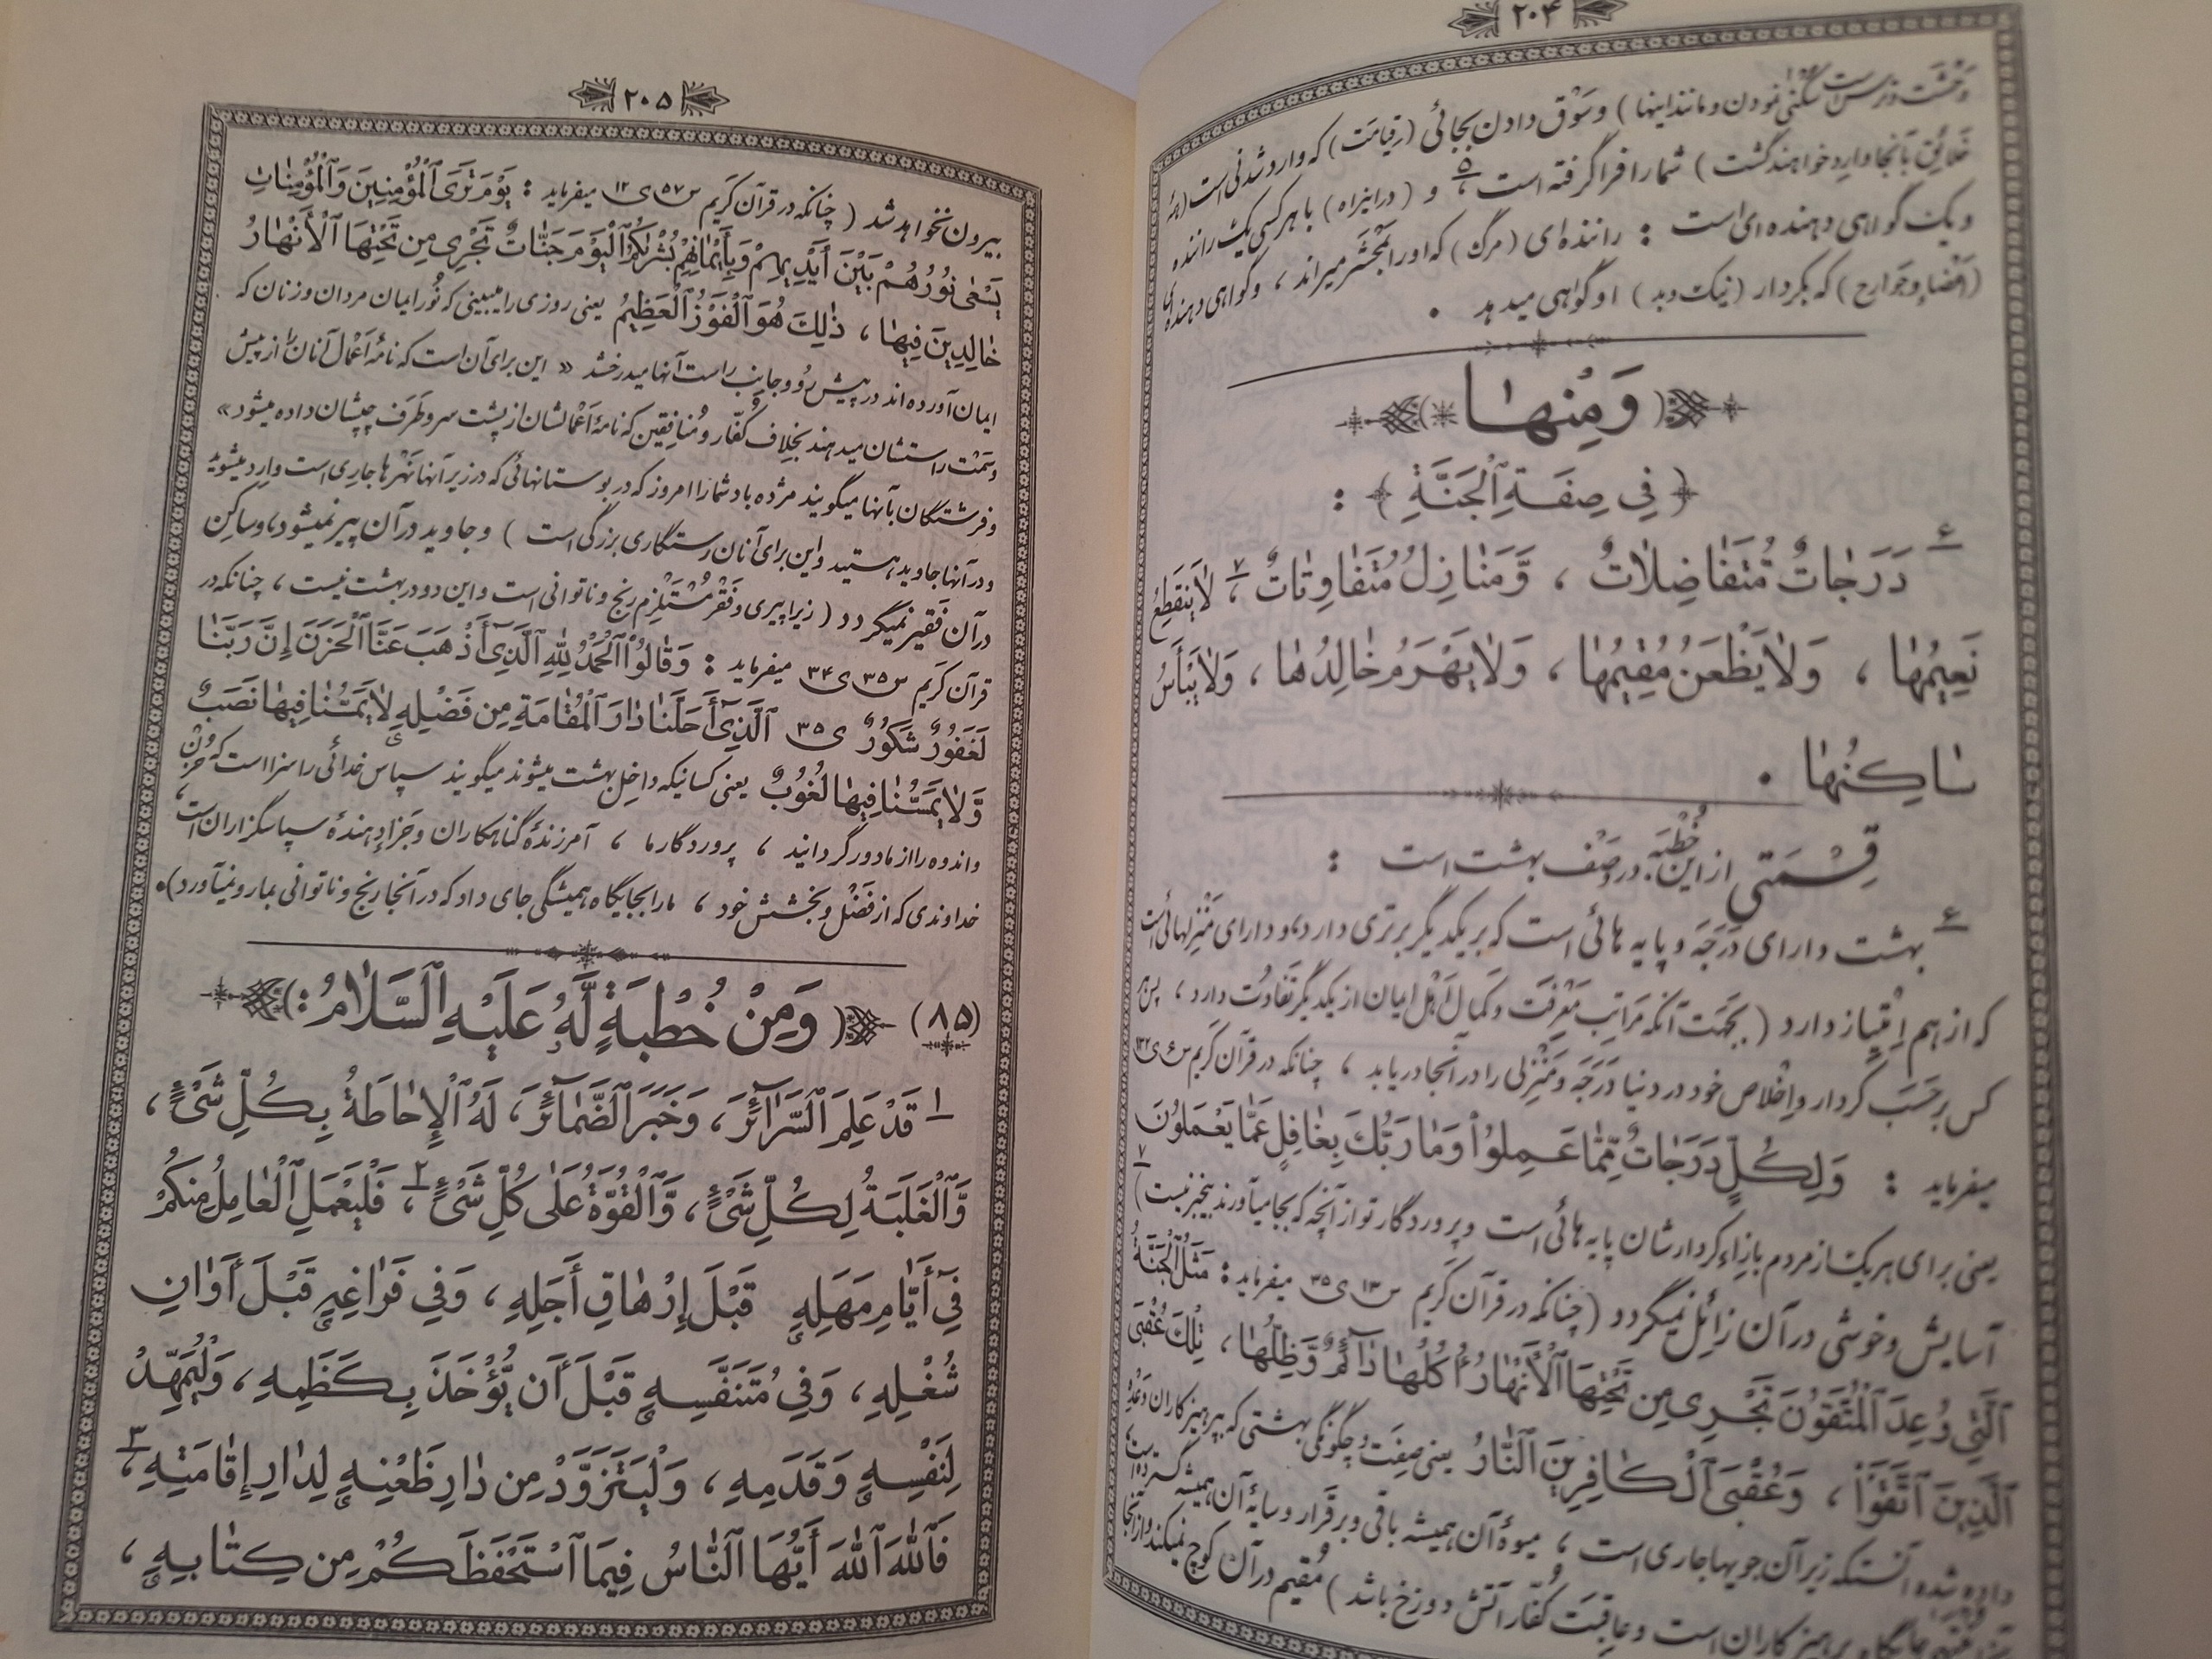 ۲۰۴
وحشت و ترس است سکنی نمودن و مانند اینها) و سَوْق دادن بجائی (قیامت) که وارد شدنی است (همهٔ
خلائق بآنجا وارد خواهند گشت) شما را فرا گرفته است ، ۵ و (در اینراه) با هر کسی یک راننده
و یک گواهی دهنده ای است : راننده ای (مرگ) که او را بمحشر میراند ، و گواهی دهنده ای
(اعضاء و جوارح) که بکردار (نیک و بد) او گواهی میدهد .
وَمِنْهٰا
﴿ فِي صِفَةِ ٱلْجَنَّةِ ﴾ :
۶ دَرَجٰاتٌ مُّتَفٰاضِلٰاتٌ ، وَّمَنٰازِلُ مُتَفٰاوِتٰاتٌ ، ۷ لٰا يَنقَطِعُ
نَعِيمُهٰا ، وَلٰا يَظْعَنُ مُقِيمُهٰا ، وَلٰا يَهْرَمُ خٰالِدُهٰا ، وَلٰا يَبْأَسُ
سٰاكِنُهٰا .
قِسْمَتی از این خُطبَه در وصف بهشت است :
۶ بهشت دارای دَرَجَه و پایه هائی است که بر یکدیگر برتری دارد، و دارای مَنْزِلهائی است
که از هم اِمْتِیاز دارد (بجهَت آنکه مَراتِب مَعْرِفَت و کمال اَهْل ایمان از یکدیگر تفاوُت دارد ، پس هر
کس بر حَسَب کردار و اِخْلاص خود در دنیا دَرَجَه و مَنْزِلی را در آنجا دریابد ، چنانکه در قرآن کَریم س ۶ ی ۱۳۲
میفرماید : وَلِكُلٍّ دَرَجٰاتٌ مِّمّٰا عَمِلُوا۟ وَمٰا رَبُّكَ بِغٰافِلٍ عَمّٰا يَعْمَلُونَ
یعنی برای هر یک از مردم بازاء کردارشان پایه هائی است و پروردگار تو از آنچه که بجا میآورند بیخبر نیست) ۷
آسایش و خوشی در آن زائل نمیگردد (چنانکه در قرآن کَریم س ۱۳ ی ۳۵ میفرماید : مَثَلُ ٱلْجَنَّةِ
ٱلَّتِي وُعِدَ ٱلْمُتَّقُونَ تَجْرِي مِن تَحْتِهَا ٱلْأَنْهٰارُ أُكُلُهٰا دٰآئِمٌ وَّظِلُّهٰا ، تِلْكَ عُقْبَى
ٱلَّذِينَ ٱتَّقَوا۟ ، وَّعُقْبَى ٱلْكٰافِرِينَ ٱلنّٰارُ یعنی صِفَت و چگونگی بهشتی که بپرهیزکاران وَعْدَه
داده شده آنستکه زیر آن جویها جاری است ، میوهٔ آن همیشه باقی و برقرار و سایهٔ آن همیشه گسترده است،
جایگاه پرهیزکاران است و عاقبَت کُفّار آتش دوزخ باشد) مُقیم در آن کوچ نمیکند و از آنجا
۲۰۵
بیرون نخواهد شد (چنانکه در قرآن کَریم س ۵۷ ی ۱۲ میفرماید : يَوْمَ تَرَى ٱلْمُؤْمِنِينَ وَٱلْمُؤْمِنٰاتِ
يَسْعٰى نُورُهُمْ بَيْنَ أَيْدِيهِمْ وَبِأَيْمٰانِهِمْ بُشْرٰىكُمُ ٱلْيَوْمَ جَنّٰاتٌ تَجْرِي مِن تَحْتِهَا ٱلْأَنْهٰارُ
خٰالِدِينَ فِيهٰا ، ذٰلِكَ هُوَ ٱلْفَوْزُ ٱلْعَظِيمُ یعنی روزی را میبینی که نُور ایمان مردان و زنان که
ایمان آورده اند در پیش رُو و جانِب راست آنها میدرخشد « این برای آن است که نامهٔ اَعْمال آنان را از پیش
و سَمْت راستشان میدهند بخِلاف کُفّار و مُنافِقین که نامهٔ اَعْمالشان از پشت سر و طَرَف چپشان داده میشود»
و فرشتگان بآنها میگویند مژده باد شما را امروز که در بوستانهائی که در زیر آنها نَهْرها جاری است وارد میشوید
و در آنها جاوید هستید و این برای آنان رستگاری بزرگی است ) و جاوید در آن پیر نمیشود، و ساکِن
در آن فَقیر نمیگردد (زیرا پیری و فَقْر مُسْتَلْزِم رنج و ناتوانی است و این دو در بهشت نیست ، چنانکه در
قرآن کَریم س ۳۵ ی ۳۴ میفرماید : وَقٰالُوا۟ ٱلْحَمْدُ لِلّٰهِ ٱلَّذِيٓ أَذْهَبَ عَنَّا ٱلْحَزَنَ إِنَّ رَبَّنٰا
لَغَفُورٌ شَكُورٌ ی ۳۵ ٱلَّذِيٓ أَحَلَّنٰا دٰارَ ٱلْمُقٰامَةِ مِن فَضْلِهِ لٰا يَمَسُّنٰا فِيهٰا نَصَبٌ
وَّلٰا يَمَسُّنٰا فِيهٰا لُغُوبٌ یعنی کسانیکه داخِل بهشت میشوند میگویند سپاس خدائی را سزا است که حُزْن
و اندوه را از ما دور گردانید ، پروردگار ما ، آمرزندهٔ گناهکاران و جَزا دهندهٔ سپاسگزاران است،
خداوندی که از فَضْل و بخشش خود ، ما را بجایگاه همیشگی جای داد که در آنجا رنج و ناتوانی بما رو نمیآورد).
(۸۵) وَمِنْ خُطْبَةٍ لَّهُ عَلَيْهِ ٱلسَّلٰامُ :
۱ قَدْ عَلِمَ ٱلسَّرٰآئِرَ ، وَخَبَرَ ٱلضَّمٰآئِرَ ، لَهُ ٱلْإِحٰاطَةُ بِكُلِّ شَيْءٍ ،
وَّٱلْغَلَبَةُ لِكُلِّ شَيْءٍ ، وَّٱلْقُوَّةُ عَلٰى كُلِّ شَيْءٍ ، ۲ فَلْيَعْمَلِ ٱلْعٰامِلُ مِنكُمْ
فِيٓ أَيّٰامِ مَهَلِهِ قَبْلَ إِرْهٰاقِ أَجَلِهِ ، وَفِي فَرٰاغِهِ قَبْلَ أَوٰانِ
شُغْلِهِ ، وَفِي مُتَنَفَّسِهِ قَبْلَ أَن يُّؤْخَذَ بِكَظَمِهِ ، وَلْيُمَهِّدْ
لِنَفْسِهِ وَقَدَمِهِ ، وَلْيَتَزَوَّدْ مِن دٰارِ ظَعْنِهِ لِدٰارِ إِقٰامَتِهِ ، ۳
فَٱللّٰهَ ٱللّٰهَ أَيُّهَا ٱلنّٰاسُ فِيمَا ٱسْتَحْفَظَكُمْ مِن كِتٰابِهِ ،